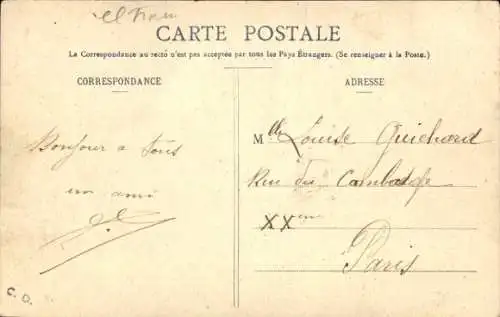 CARTE POSTALE
La Correspondance au recto n'est pas acceptée par tous les Pays Étrangers. (Se renseigner à la Poste.)
CORRESPONDANCE
Bonjour a tous
un ami
C. O.
ADRESSE
Mlle Louise Guichard
Rue du
XXeme
Paris